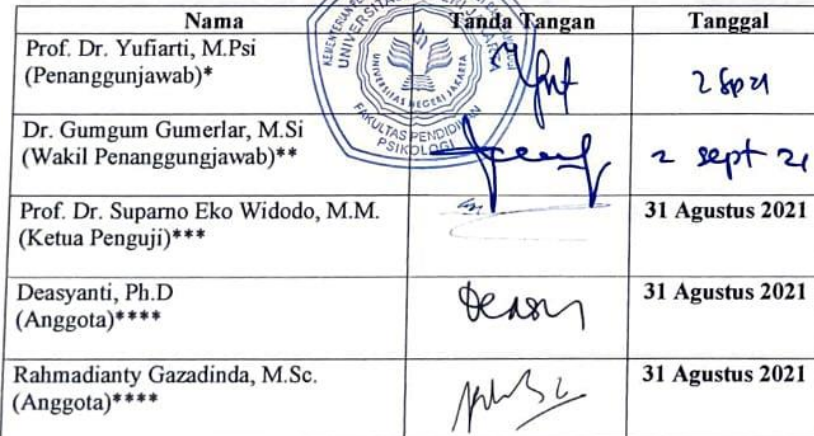 Nama Tanda Tangan Tanggal
Prof. Dr. Yufiarti, M.Psi
(Penanggunjawab)*
2 Sp 21
Dr. Gumgum Gumerlar, M.Si
(Wakil Penanggungjawab)**
2 sept 21
Prof. Dr. Suparno Eko Widodo, M.M. 31 Agustus 2021
(Ketua Penguji)***
Deasyanti, Ph.D 31 Agustus 2021
(Anggota)****
Rahmadianty Gazadinda, M.Sc. 31 Agustus 2021
(Anggota)****
UNIVERSITAS NEGERI JAKARTA
FAKULTAS PENDIDIKAN
PSIKOLOGI